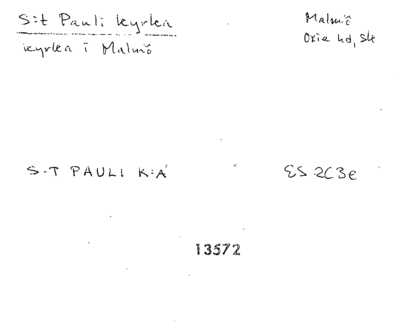 S:t Pauli kyrka
kyrka i Malmö
Malmö
Oxie hd, Sk
S-T PAULI K:A
ES 2C3e
13572